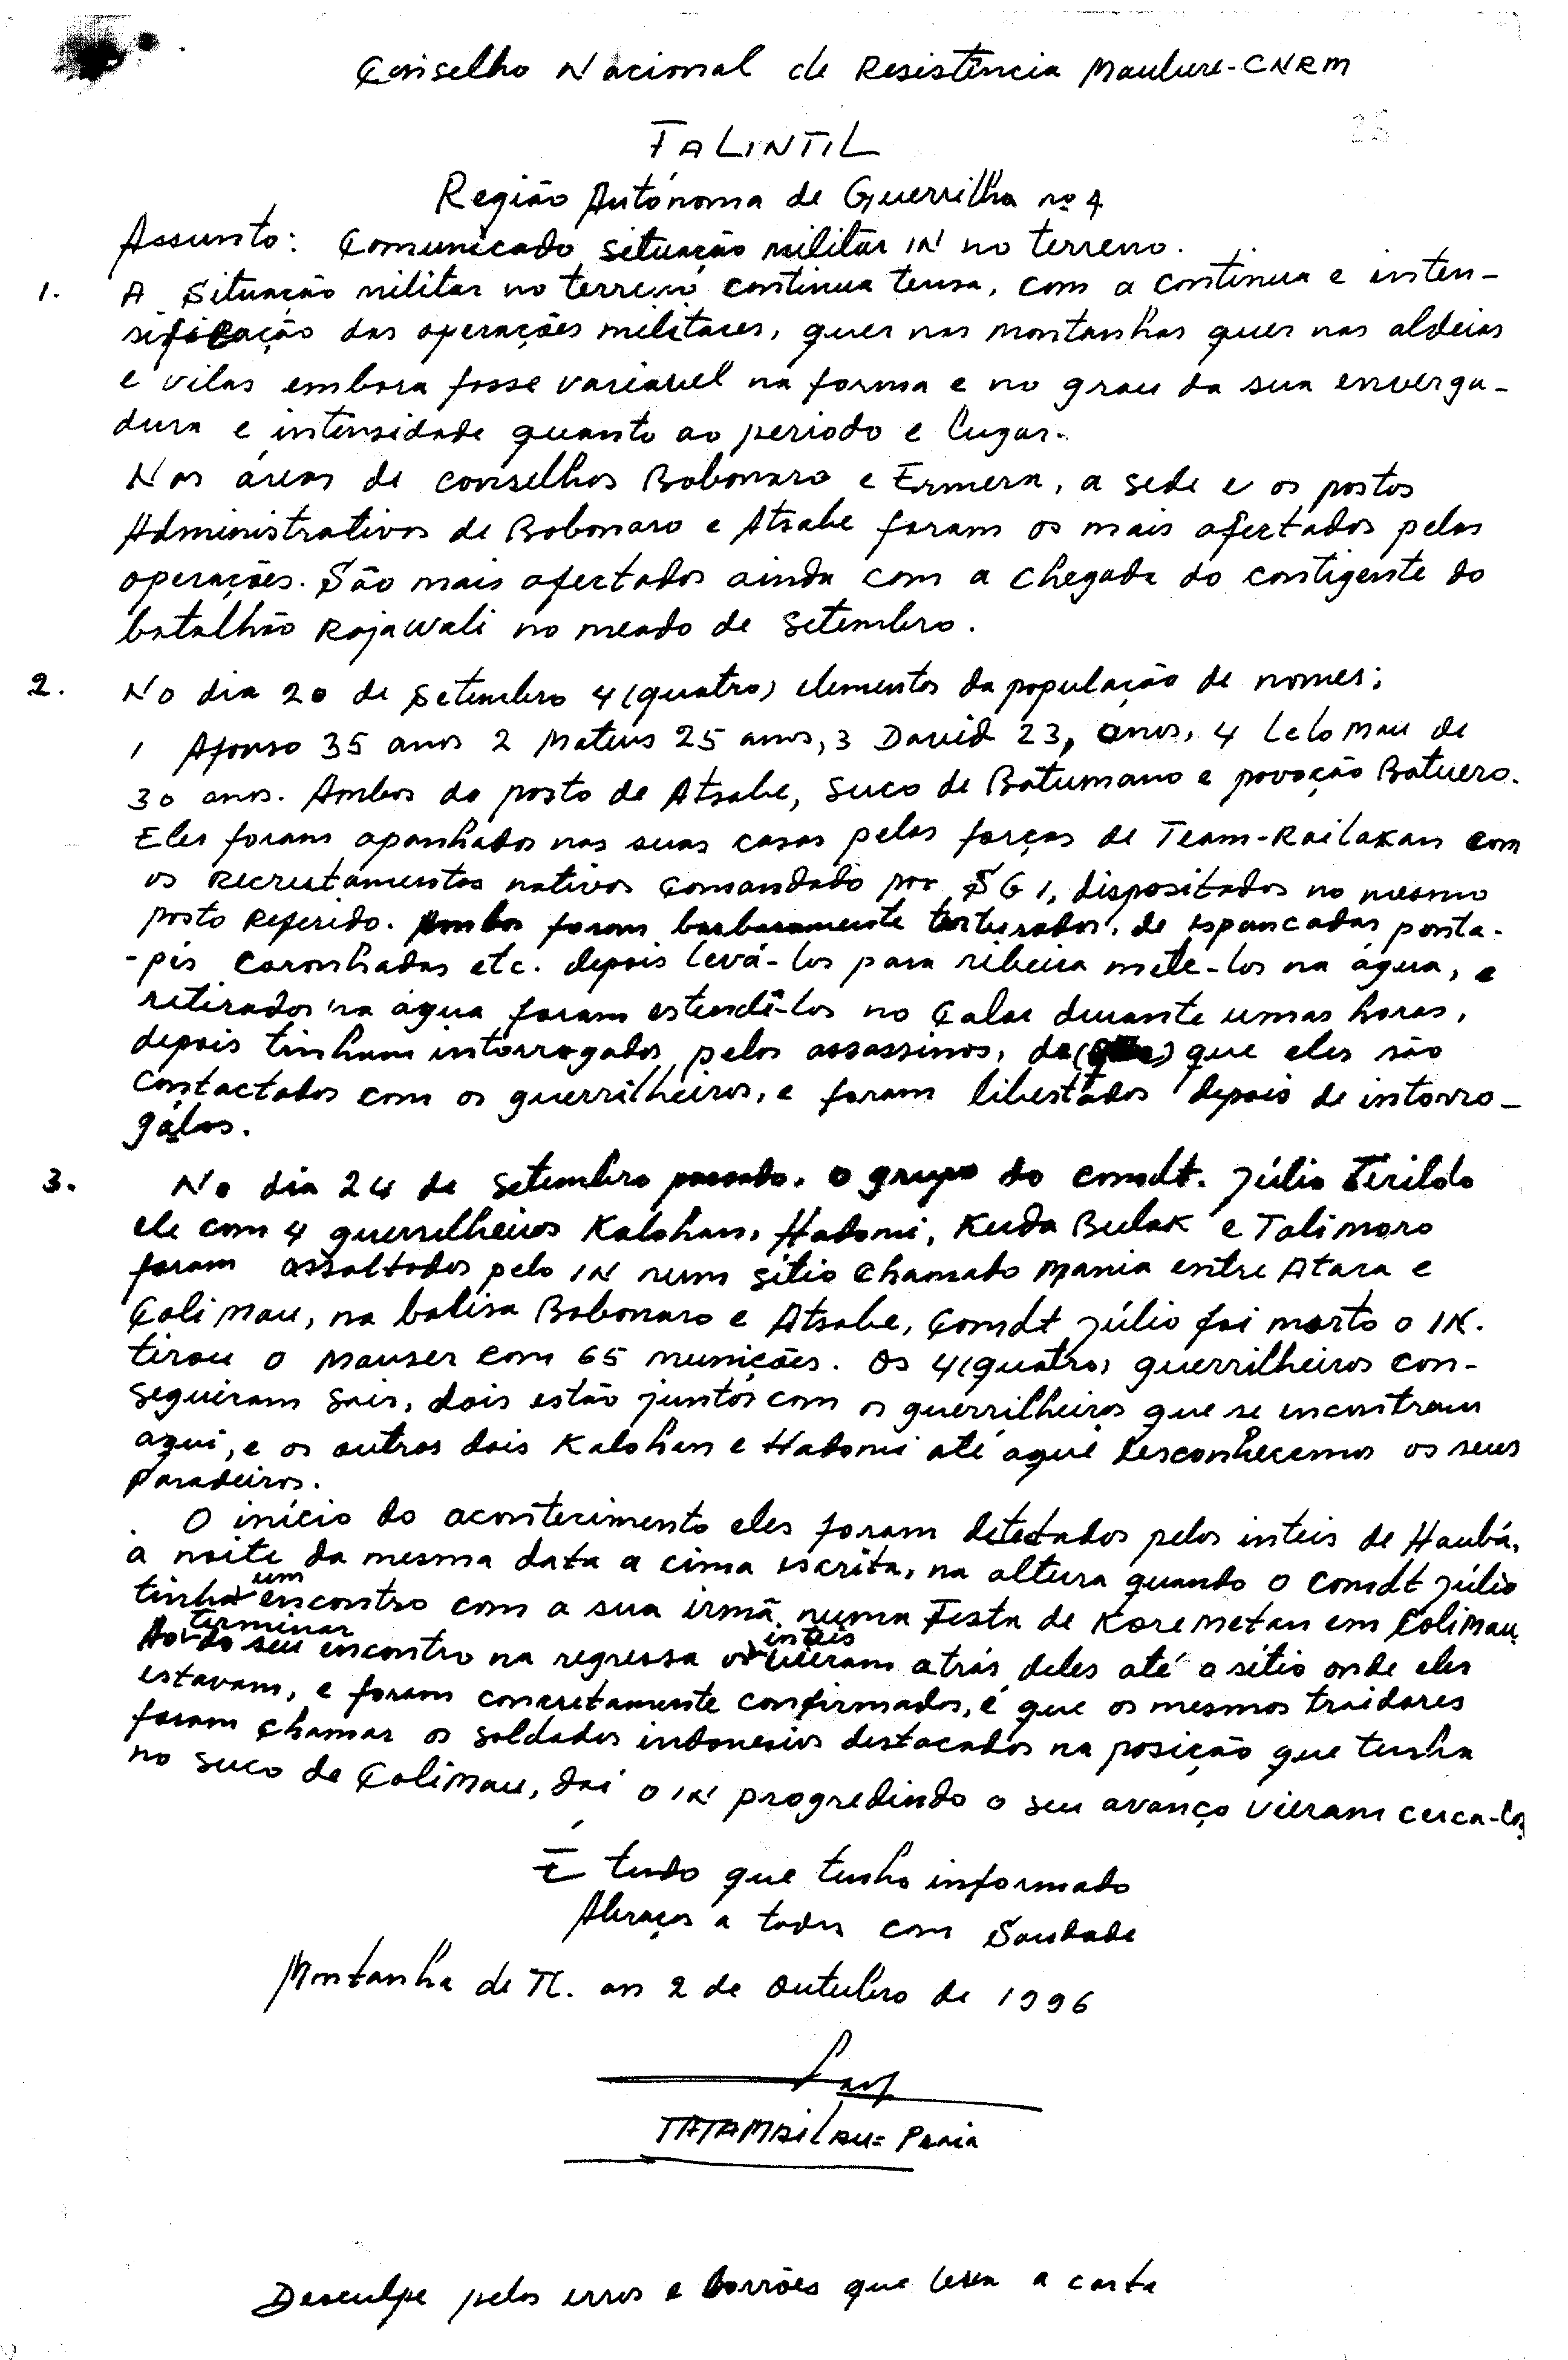 Conselho Nacional de Resistência Maubere-CNRM
FALINTIL
Região Autónoma de Guerrilha nº 4
Assunto: Comunicado situação militar IN no terreno.
1. A Situação militar no terreno continua tensa, com a continua e inten-
sificação das operações militares, quer nas montanhas quer nas aldeias
e vilas embora fosse variavel na forma e no grau da sua enverga-
dura e intensidade quanto ao periodo e lugar.
Nas áreas de conselhos Bobonaro e Ermera, a sede e os postos
Administrativos de Bobonaro e Atsabe foram os mais afectados pelas
operações. São mais afectados ainda com a chegada do contigente do
batalhão Rajawali no meado de Setembro.
2. No dia 20 de Setembro 4 (quatro) elementos da população de nomes;
1 Afonso 35 anos 2 Mateus 25 anos, 3 David 23, anos, 4 Lelo Mau de
30 anos. Ambos do posto de Atsabe, Suco de Batumano e povoação Batuero.
Eles foram apanhados nas suas casas pelas forças de Team-Railakan com
os recrutamentos nativos comandado por SG 1, dispositados no mesmo
posto referido. Ambos foram barbaramente torturados, de espancadas ponta-
-pés coronhadas etc. depois levá-los para ribeira mete-los na água, e
retirados na água foram estendê-los no calor durante umas horas,
depois tinham intorrogados pelos assassinos, de () que eles são
contactados com os guerrilheiros, e foram libertados depois de intorro-
gálos.
3. No dia 24 de Setembro passado. O grupo do comdt. Júlio Tirildo
ele com 4 guerrilheiros Kalohan, Hadomi, Kuda Bulak e Talimoro
foram assaltados pelo IN num sitio chamado Mania entre Atara e
Colimau, na balisa Bobonaro e Atsabe, Comdt Júlio foi morto o IN.
tirou o Mauser com 65 munições. Os 4 (quatro) guerrilheiros con-
seguiram sair, dois estão juntos com os guerrilheiros que se encontram
aqui, e os outros dois Kalohan e Hadomi até aqui desconhecemos os seus
paradeiros.
. O início do acontecimento eles foram detectados pelos inteis de Haubá,
a noite da mesma data a cima escrita, na altura quando o Comdt Júlio
tinha um encontro com a sua irmã numa Festa de Kore metan em Colimau.
Ao terminar do seu encontro na regressa os inteis vieram atrás deles até o sítio onde eles
estavam, e foram concretamente confirmados, é que os mesmos traidores
foram chamar os soldados indonesios destacados na posição que tenha
no suco de Colimau, daí o IN progredindo o seu avanço vieram cerca-los
É tudo que tenho informado
Abraços a todos com Saudade
Montanha de TL. aos 2 de Outubro de 1996
TATAMAILAU= Pania
Desculpe pelos erros e borrões que leva a carta